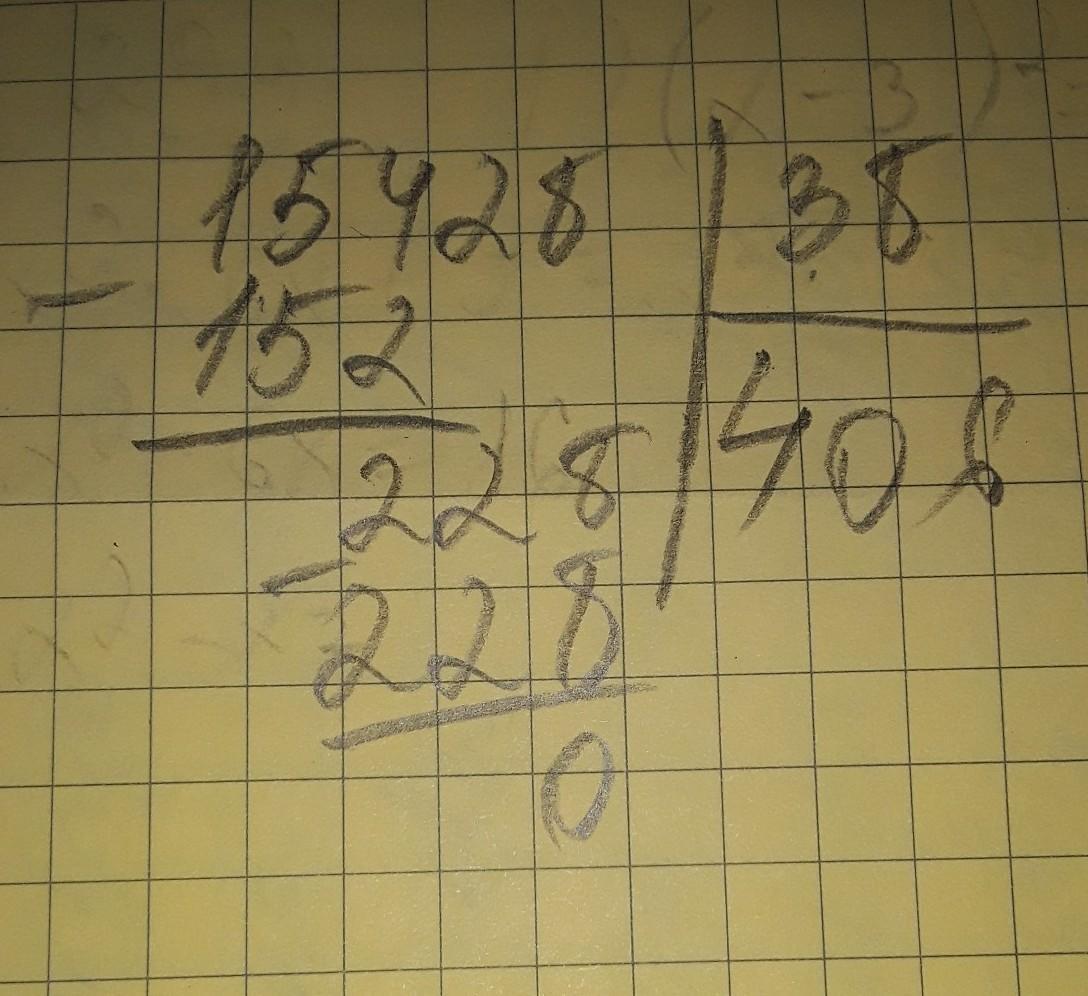 15428 | 38
- 152 | 408
228
- 228
0